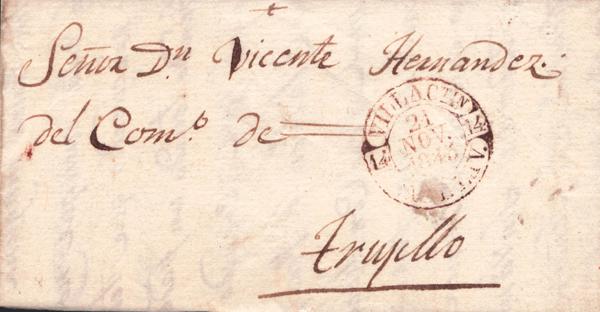 Señor Dn Vicente Hernandez.
del Como. de
VILLACTIN
21
NOV.
14
Trujillo